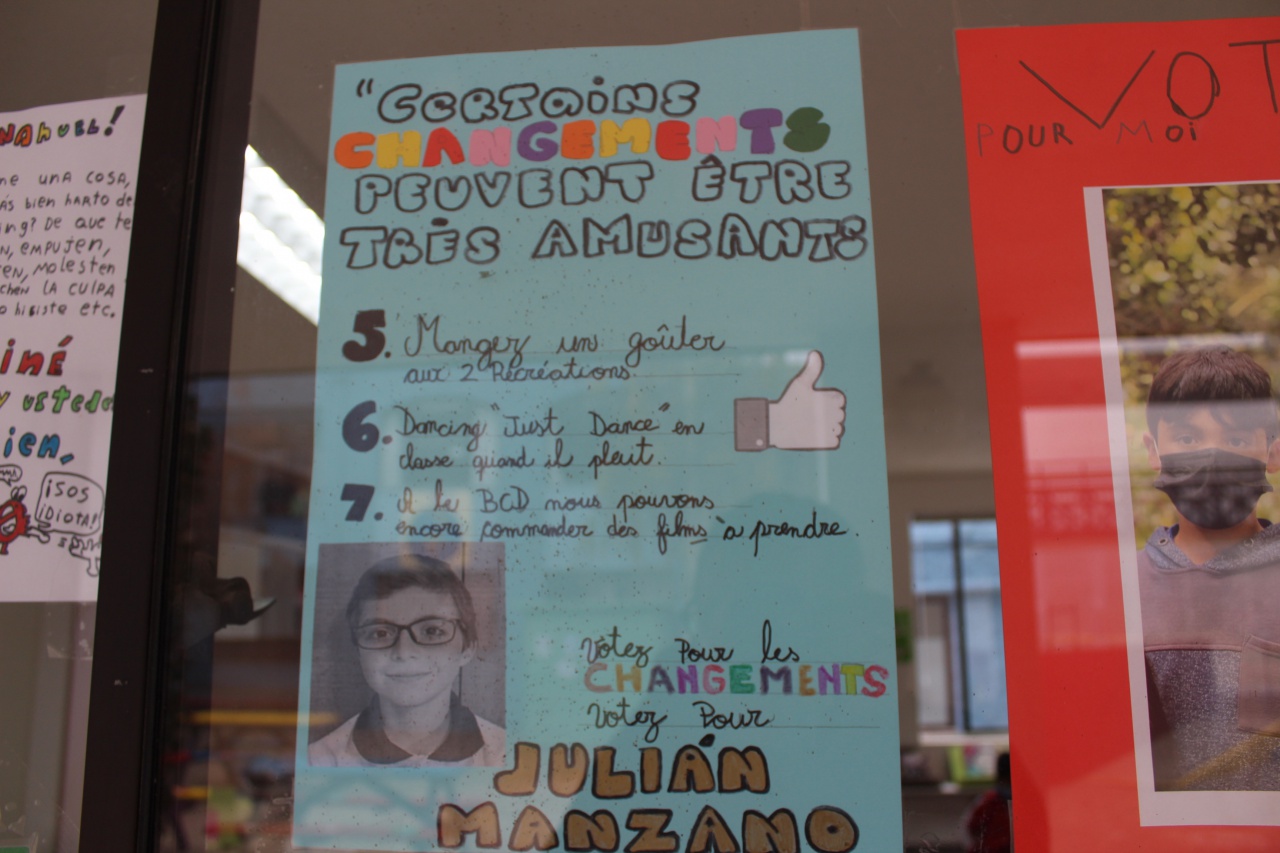 NAHUEL!
UNA COSA,
BIEN HARTO de
De que te
EMPUJEN,
MOLESTEN
LA CULPA
hiciste etc.
y ustede
¡SOS
iDiOTA!
"CERTAiNS
CHANGEMENTS
PEUVENT ÊTRE
TRÈS AMUSANTS
5. Mangez un goûter
aux 2 Récréations
6. Dancing "Just Dance" en
classe quand il pleut.
7. A la BCD nous pouvons
encore commander des films à prendre.
Votez Pour les
CHANGEMENTS
Votez Pour
JULIÁN
MANZANO
VOT
POUR MOi